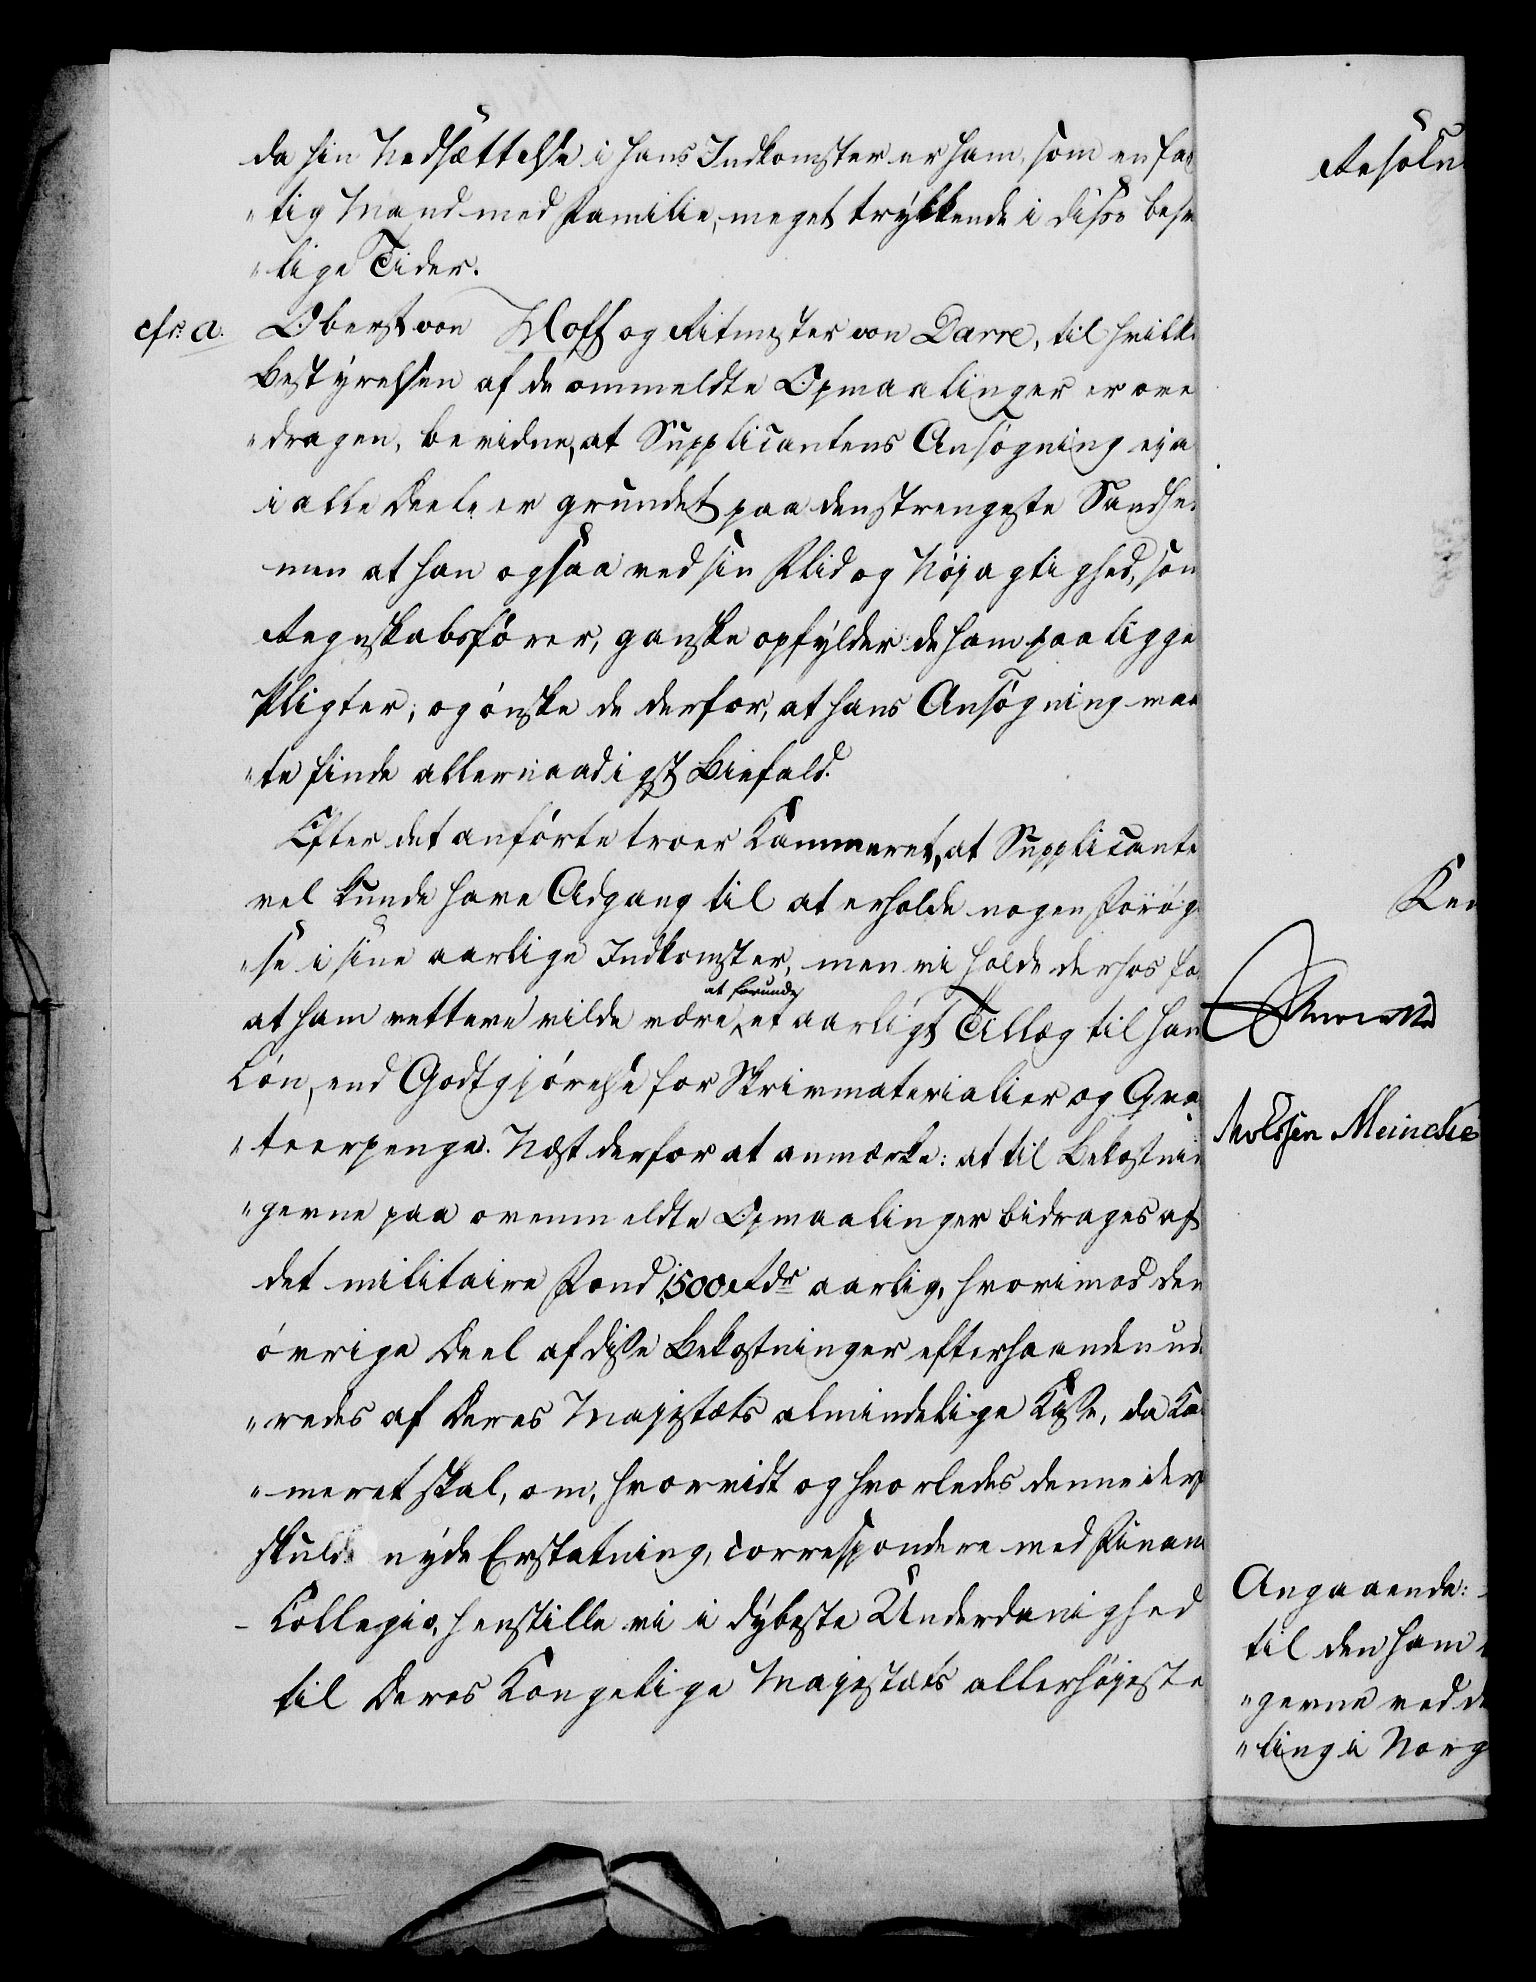 da hin Nedsættelse i hans Indkomster er ham, som en fat
"tig Mand med Familie, meget trykkende i disse besv
"lige Tider.
cfr: a. Oberst von Hoff og Ritmester von Darre, til hvilke
Bestyrelsen af de ommeldte Opmaalinger er ove
"dragen, bevidne, at Supplicantens Ansøgning ej a
i alle Deele er grundet paa den strengeste Sandhe
men at han ogsaa ved sin Flid og Nøjagtighed, som
Regnskabsfører, ganske opfylder de ham paaligge
Pligter; og ønske de derfor, at hans Ansøgning maa
"te finde allernaadigst Biefald.
Efter det anførte troer Kammeret, at Supplicante
vel kunde have Adgang til at erholde nogen Forøg
"se i sine aarlige Indkomster, men vi holde derhos fo
at forunde
at ham rettere vilde være et aarligt Tillæg til han
Løn, end Godtgjørelse for Skrivmaterialier og Qva
"teerpenge. Næst derfor at anmærke: at til Bekostnin
"gerne paa ovenmeldte Opmaalinger bidrages af
det militaire Fond 1500 Rdr aarlig, hvorimod den
øvrige Deel af disse Bekostninger efterhaanden ud
"redes af Deres Majestæts almindelige Kasse, da Ka
"meret skal, om, hvorvidt og hvorledes denne der
skulde nyde Erstatning, correspondere med Finanz
Collegio, henstille vi i dybeste Underdanighed
til Deres Kongelige Majestæts allerhøjeste
Resolu
Ren
Meinche
Angaaende:
til den ham
"gerne ved de
"ling i Norg